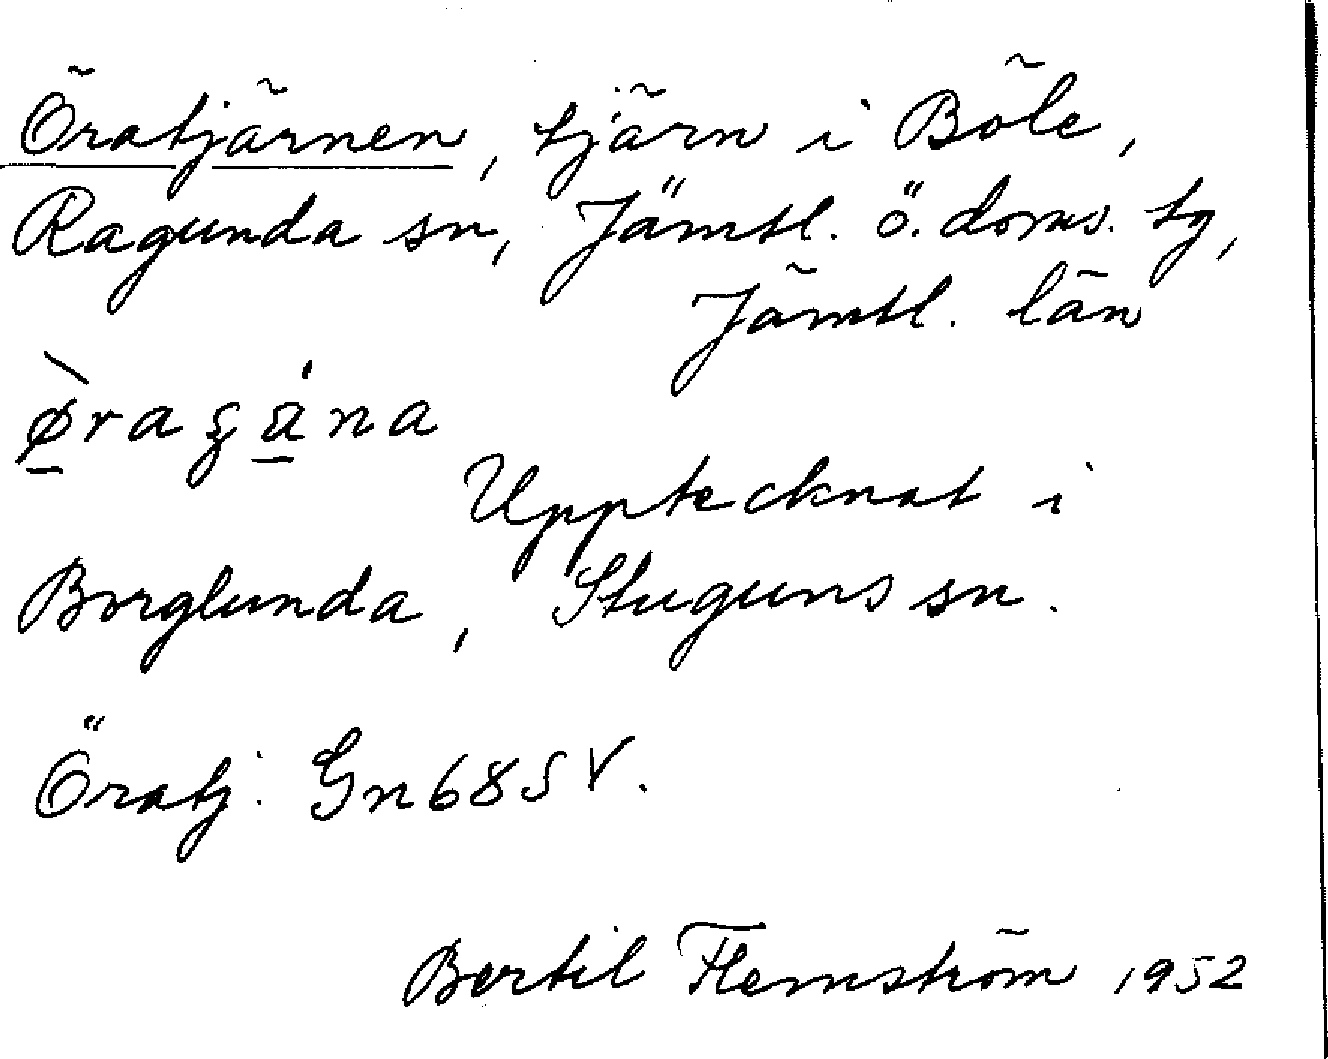 Öratjärnen, tjärn i Böle,
Ragunda sn, Jämtl. ö. doms. tg,
Jämtl. län
Upptecknat i
Borglunda, Stuguns sn.
Öratj. Gn68SV.
Bertil Flemström 1952